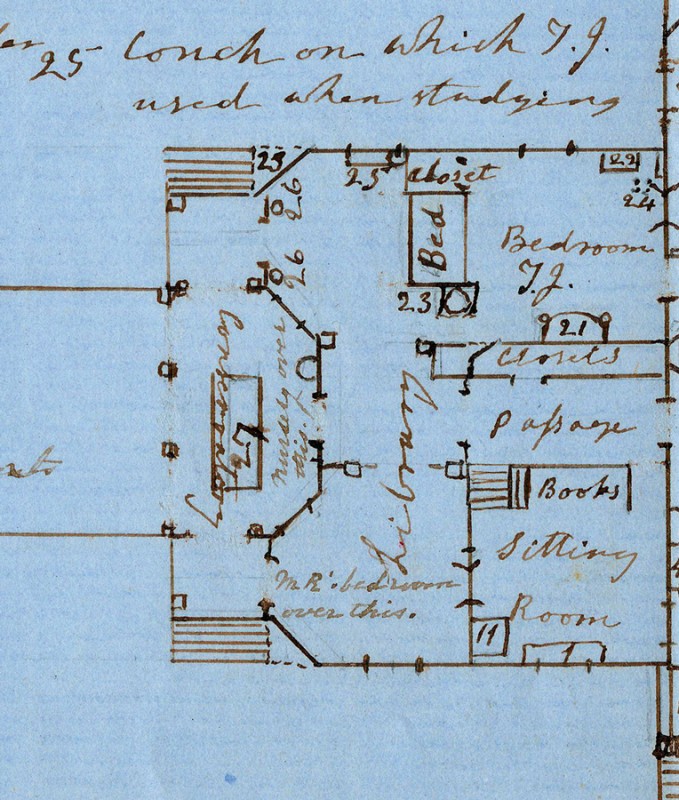 25 Couch on which T.J.
used when studying
25
closet
22
24
25
26
26
Bed
Bedroom
T.J.
23
21
Closets
Conservatory
Nursery over
this.
Library
Passage
Books
Sitting
Room
Mrs R's bedroom
over this.
11
1